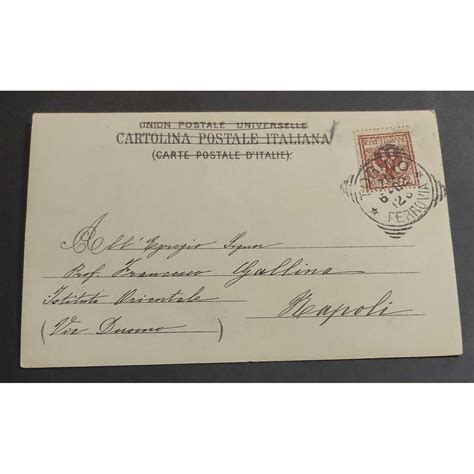 UNION POSTALE UNIVERSELLE
CARTOLINA POSTALE ITALIANA
(CARTE POSTALE D'ITALIE).
FERROVIA
All' Egregio Signor
Prof. Francesco Gallina
Istituto Orientale
(Via Duomo)
Napoli